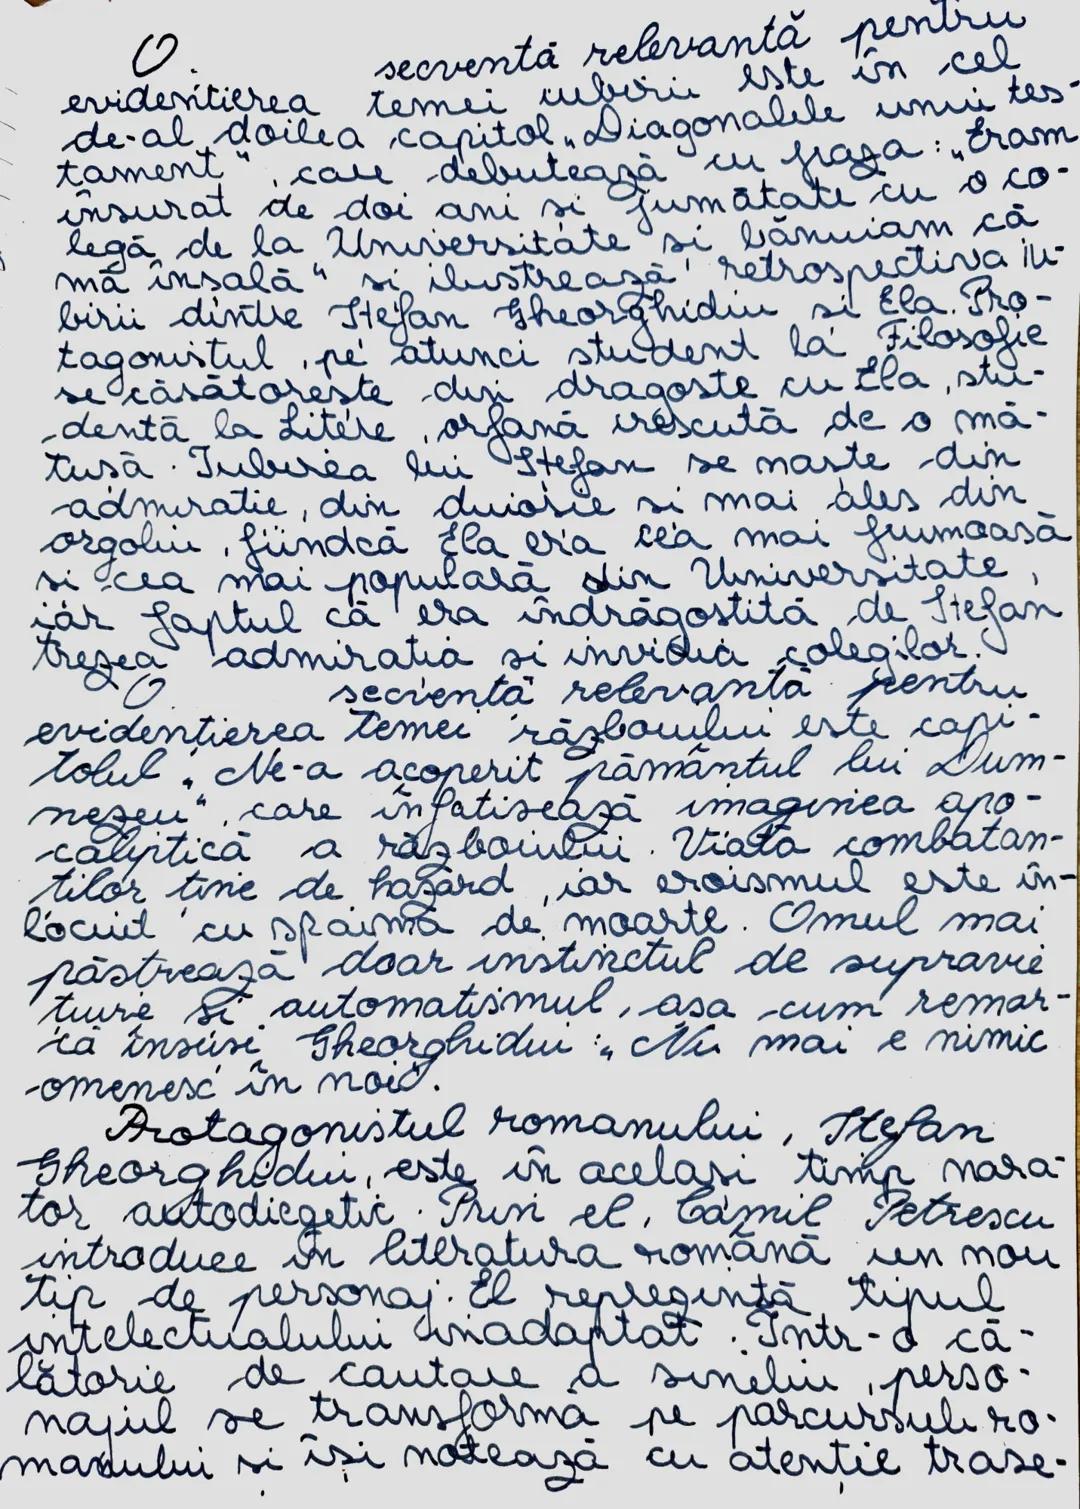 O secvență relevantă pentru
evidențierea temei iubirii este în cel
de-al doilea capitol „Diagonalele unui tes-
tament", care debutează cu fraza: „Eram
însurat de doi ani si jumătate cu o co-
legă de la Universitate si bănuiam că
mă însală" si ilustrează retrospectiva iu-
birii dintre Stefan Gheorghidiu si Ela. Pro-
tagonistul, pe atunci student la Filosofie
se căsătoreste din dragoste cu Ela, stu-
dentă la Litere, orfană crescută de o mă-
tusă. Iubirea lui Stefan se naste din
admiratie, din duiosie si mai ales din
orgoliu, fiindcă Ela era cea mai frumoasă
si cea mai populară din Universitate,
iar faptul că era îndrăgostită de Stefan
trezea admiratia si invidia colegilor.
O secventă relevantă pentru
evidențierea temei războiului este capi-
tolul „Ne-a acoperit pământul lui Dum-
nezeu", care înfatisează imaginea apo-
caliptică a războiului. Viata combatan-
tilor tine de hazard, iar eroismul este în-
locuit cu spaima de moarte. Omul mai
păstrează doar instinctul de supravie
tuire si automatismul, asa cum remar-
că însusi Gheorghidiu: „Nu mai e nimic
omenesc în noi".
Protagonistul romanului, Stefan
Gheorghidiu, este în acelasi timp nara-
tor autodiegetic. Prin el, Camil Petrescu
introduce în literatura română un nou
tip de personaj. El reprezintă tipul
intelectualului inadaptat. Într-o că-
lătorie de cautare a sinelui, perso-
najul se transformă pe parcursul ro-
manului si îsi notează cu atenție trase-